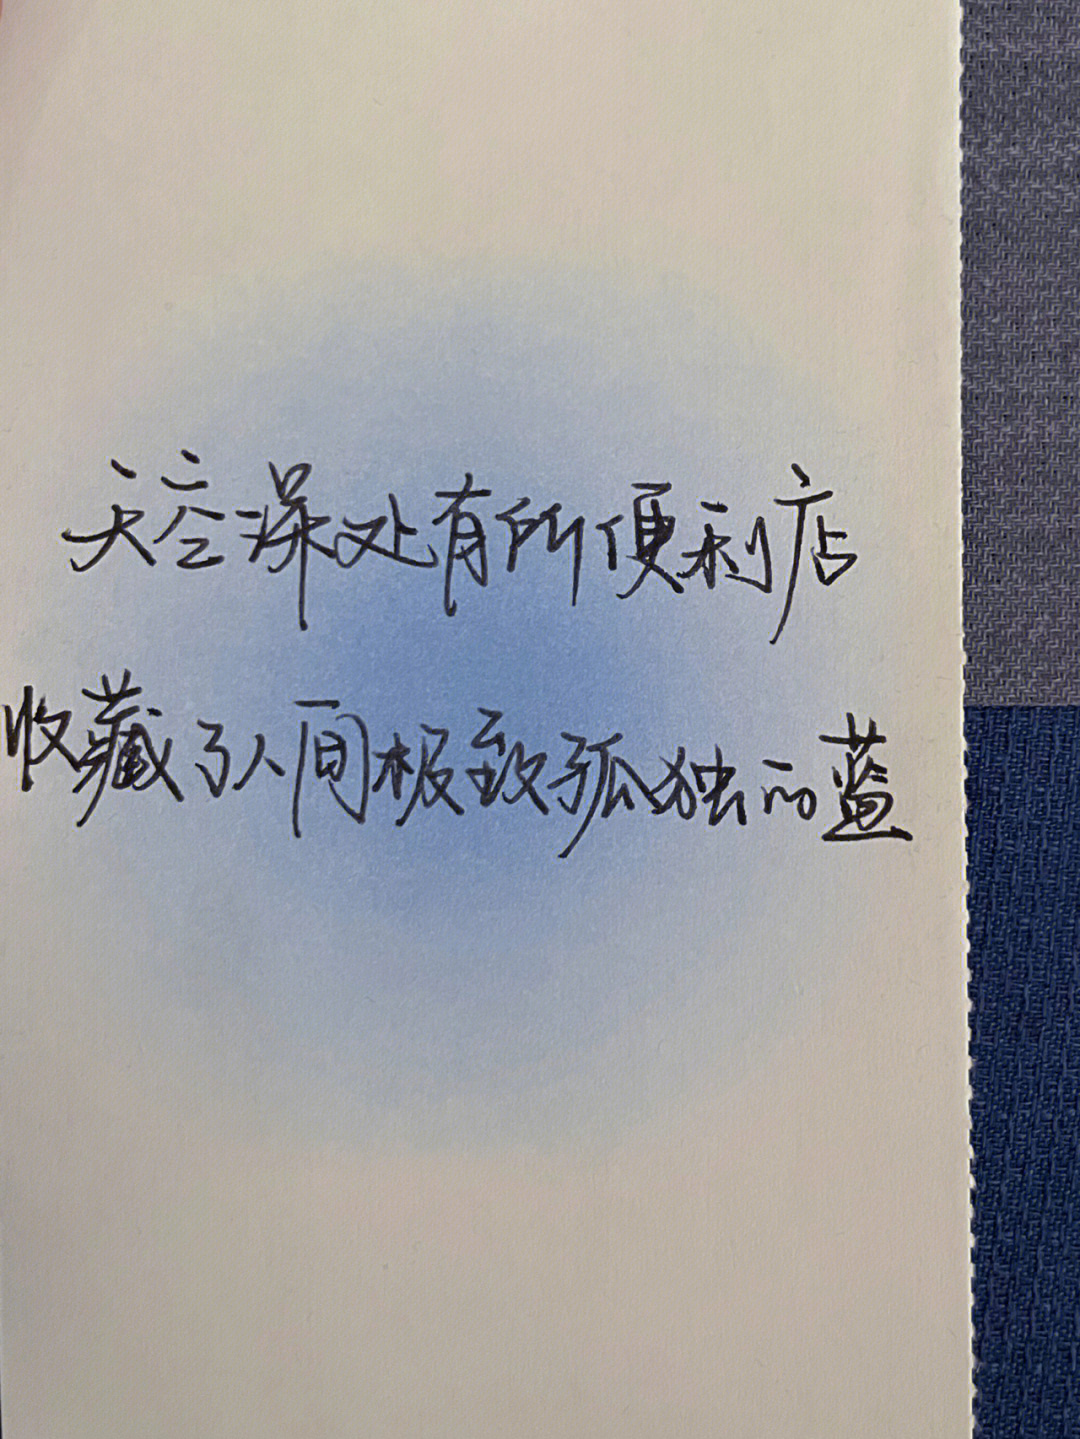 天空深处有所便利店
收藏了人间极致孤独的蓝